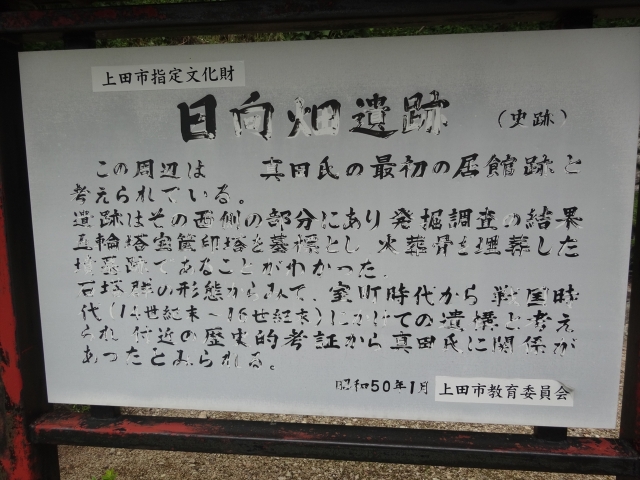 上田市指定文化財
日向畑遺跡 (史跡)
この周辺は 真田氏の最初の居館跡と
考えられている。
遺跡はその西側の部分にあり 発掘調査の結果
五輪塔宝篋印塔を墓標とし 火葬骨を埋葬した
墳墓跡であることがわかった。
の形態からみて、室町時代から 戦国時
代(14世紀末~16世紀末)にかけての遺構と考え
られ 付近の歴史的考証から真田氏に関係が
あったとみられる。
昭和50年1月 上田市教育委員会